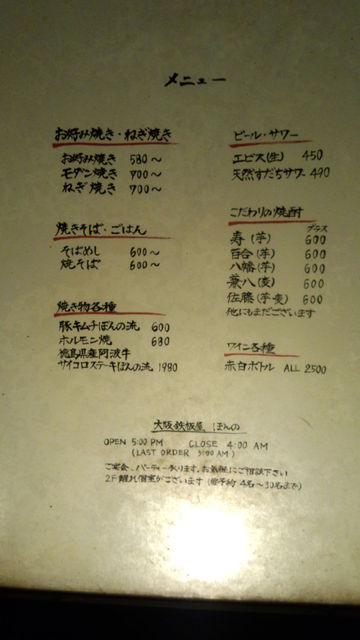 メニュー
お好み焼き・ねぎ焼き
お好み焼き 580～
モダン焼き 700～
ねぎ焼き 700～
焼きそば・ごはん
そばめし 600～
焼そば 600～
焼き物各種
豚キムチぼんの流 600
ホルモン焼 680
徳島県産阿波牛
サイコロステーキぼんの流 1980
ビール・サワー
エビス(生) 450
天然すだちサワー 490
こだわりの焼酎
グラス
寿(芋) 600
百合(芋) 600
八幡(芋) 600
兼八(麦) 600
佐藤(芋・麦) 600
他にもまだございます
ワイン各種
赤白ボトル ALL 2500
大阪鉄板屋 ぼんの
OPEN 5:00 PM CLOSE 4:00 AM
(LAST ORDER 3:00 AM)
ご宴会、パーティー承ります。お気軽にご相談下さい
2F離れ個室がございます(要予約 4名～30名まで)